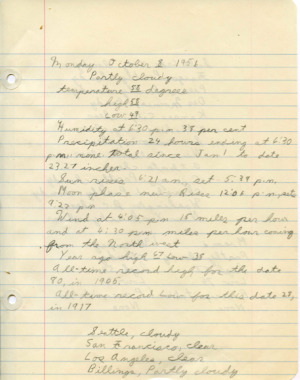 Monday October 8 1956
Partly cloudy
temperature 58 degrees
high 58
low 49
Humidity at 6:30 pm 38 per cent
Precipitation 24 hours ending at 6:30
pm none total since Jan 1 to date
27.27 inches
Sun rises 6:21 am, set 5:39 pm
Moon phase new, Rides 12:06 pm sets
9:22 pm
Wind at 4:05 pm 15 miles per hour
and at 6:30 pm miles per hour coming
from the North west
Year ago high 57 low 35
All-time record high for the date
90, in 1905.
All-time record low for this date 28,
in 1917
Settle, cloudy
San Francisco, clear
Los Angeles, clear
Billings, Partly cloudy